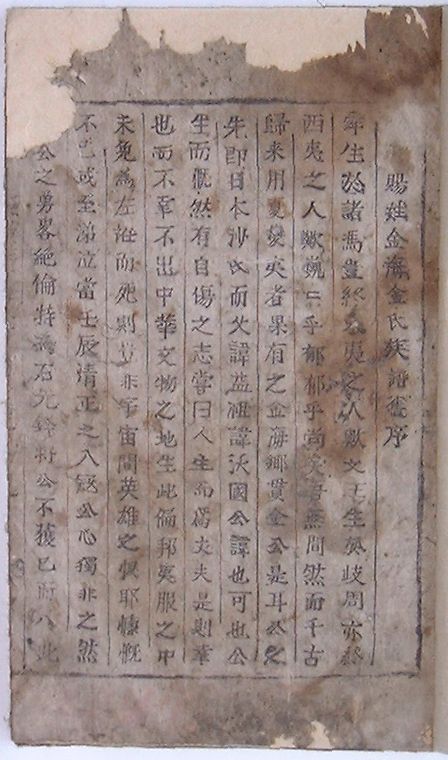 賜姓金海金氏族譜舊序
舜生於諸馮豈終東夷之人歟文王生於岐周亦終
西夷之人歟巍巍乎郁郁乎尚矣吾無間然而千古
歸来用夏變夷者果有之金海鄉貫金公是耳公之
先即日本沙氏而父諱益祖諱沃國公諱也可也公
生而慨然有自傷之志嘗曰人生而爲丈夫是則幸
也而不幸不出中華文物之地生此偏邦夷服之中
未免爲左衽而死則豈非宇宙間英雄之恨耶慷慨
不已或至涕泣當壬辰清正之入寇公心獨非之然
公之勇畧絶倫特爲右先鋒將公不獲已而八此